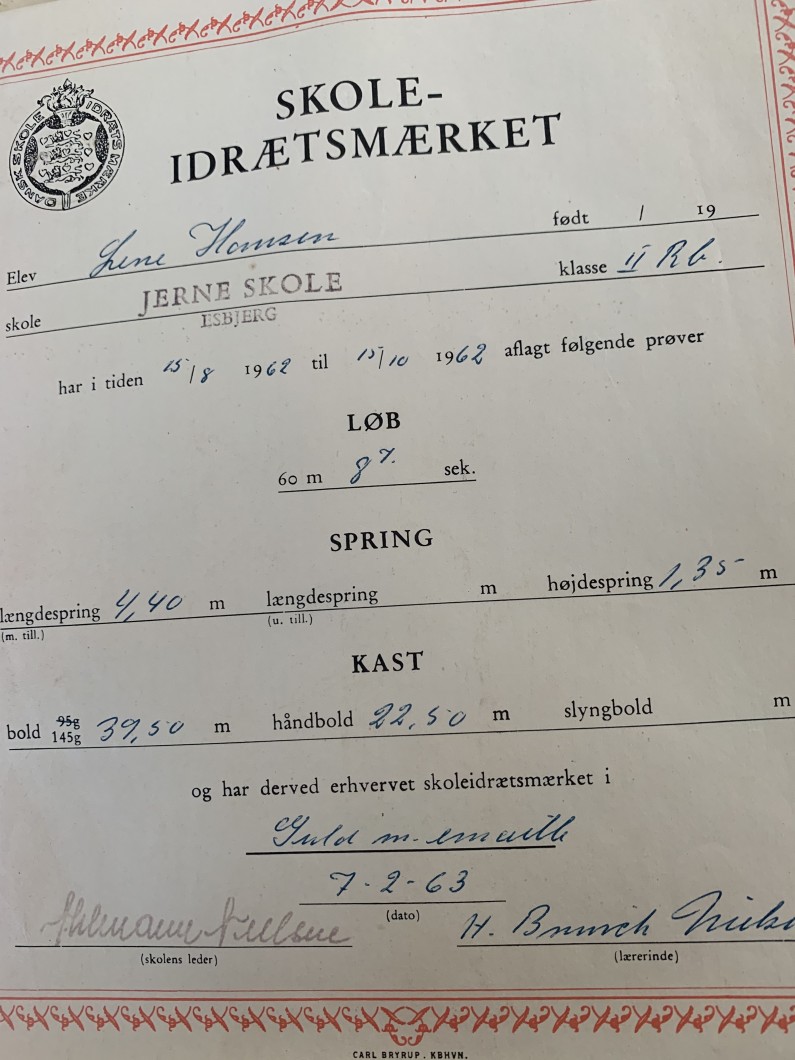 SKOLE-
IDRÆTSMÆRKET
DANSK SKOLE IDRÆTS MÆRKE
Elev Lene Hansen født / 19
skole JERNE SKOLE klasse II R b.
ESBJERG
har i tiden 15/8 1962 til 15/10 1962 aflagt følgende prøver
LØB
60 m 8 sek.
SPRING
længdespring 4,40 m længdespring m højdespring 1,35 m
(m. till.) (u. till.)
KAST
bold 95g 145g 39,50 m håndbold 22,50 m slyngbold m
og har derved erhvervet skoleidrætsmærket i
Guld m. emaille
7-2-63
(dato)
Nielsen H. Nielse
(skolens leder) (lærerinde)
CARL BRYRUP . KBHVN.